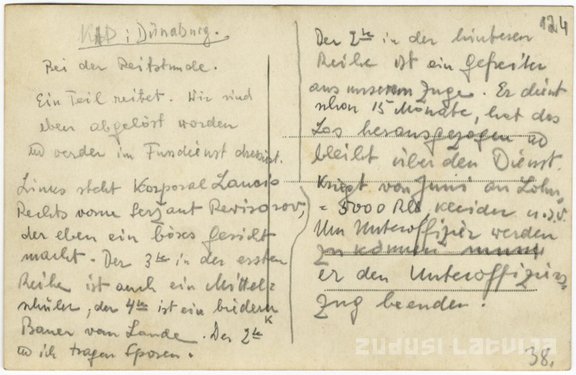 124
KAP: Dünaburg.
Bei der Reitstunde.
Ein Teil reitet. Wir sind
eben abgelöst worden
u werden im Fussdienst dressiert.
Links steht Korporal
Rechts vorne Serżant Revisorov,
der eben ein böses Gesicht
macht. Der 3te in der ersten
Reihe ist auch ein Mittel-
schüler, der 4te ist ein biederer
Bauer vom Lande. Der 2te
u ich tragen Sporen.
Der 2te in der hinteren
Reihe ist ein Gefreiter
aus unserem Zuge. Er dient
schon 15 Monate, hat das
Los herausgezogen u
bleibt über den Dienst.
Kriegt von Juni an Lohn
= 5000 Rbl Kleider u.s.w.
Um Unteroffizier werden
zu können muss
er den Unteroffiziers-
zug beenden.
38.
ZUDUSI LATVIJA